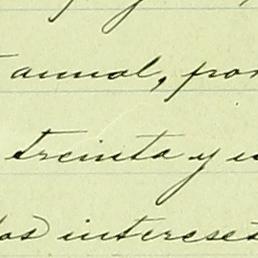 anual, por
treinta y u
los intereses